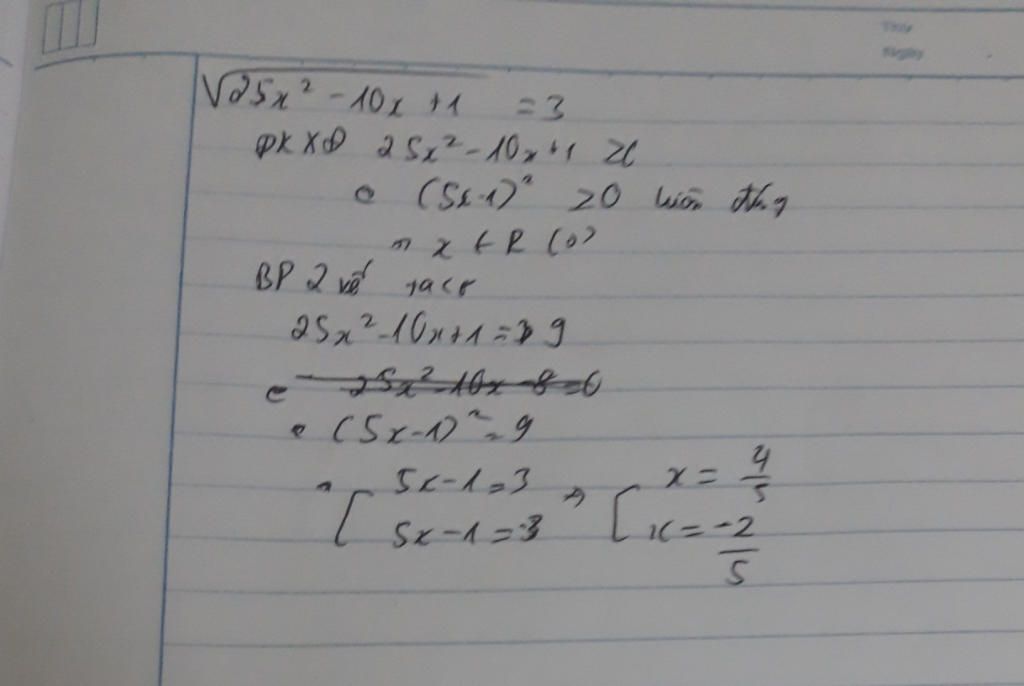 Thứ
Ngày
√25x² - 10x + 1 = 3
ĐKXĐ 25x² - 10x + 1 ≥ 0
(5x-1)² ≥ 0 luôn đúng
x ∈ R
BP 2 vế ta có
25x² - 10x + 1 = 9
25x² - 10x - 8 = 0
(5x-1)² = 9
[ 5x-1 = 3 ⇒ [ x = 4/5
5x-1 = -3 x = -2/5